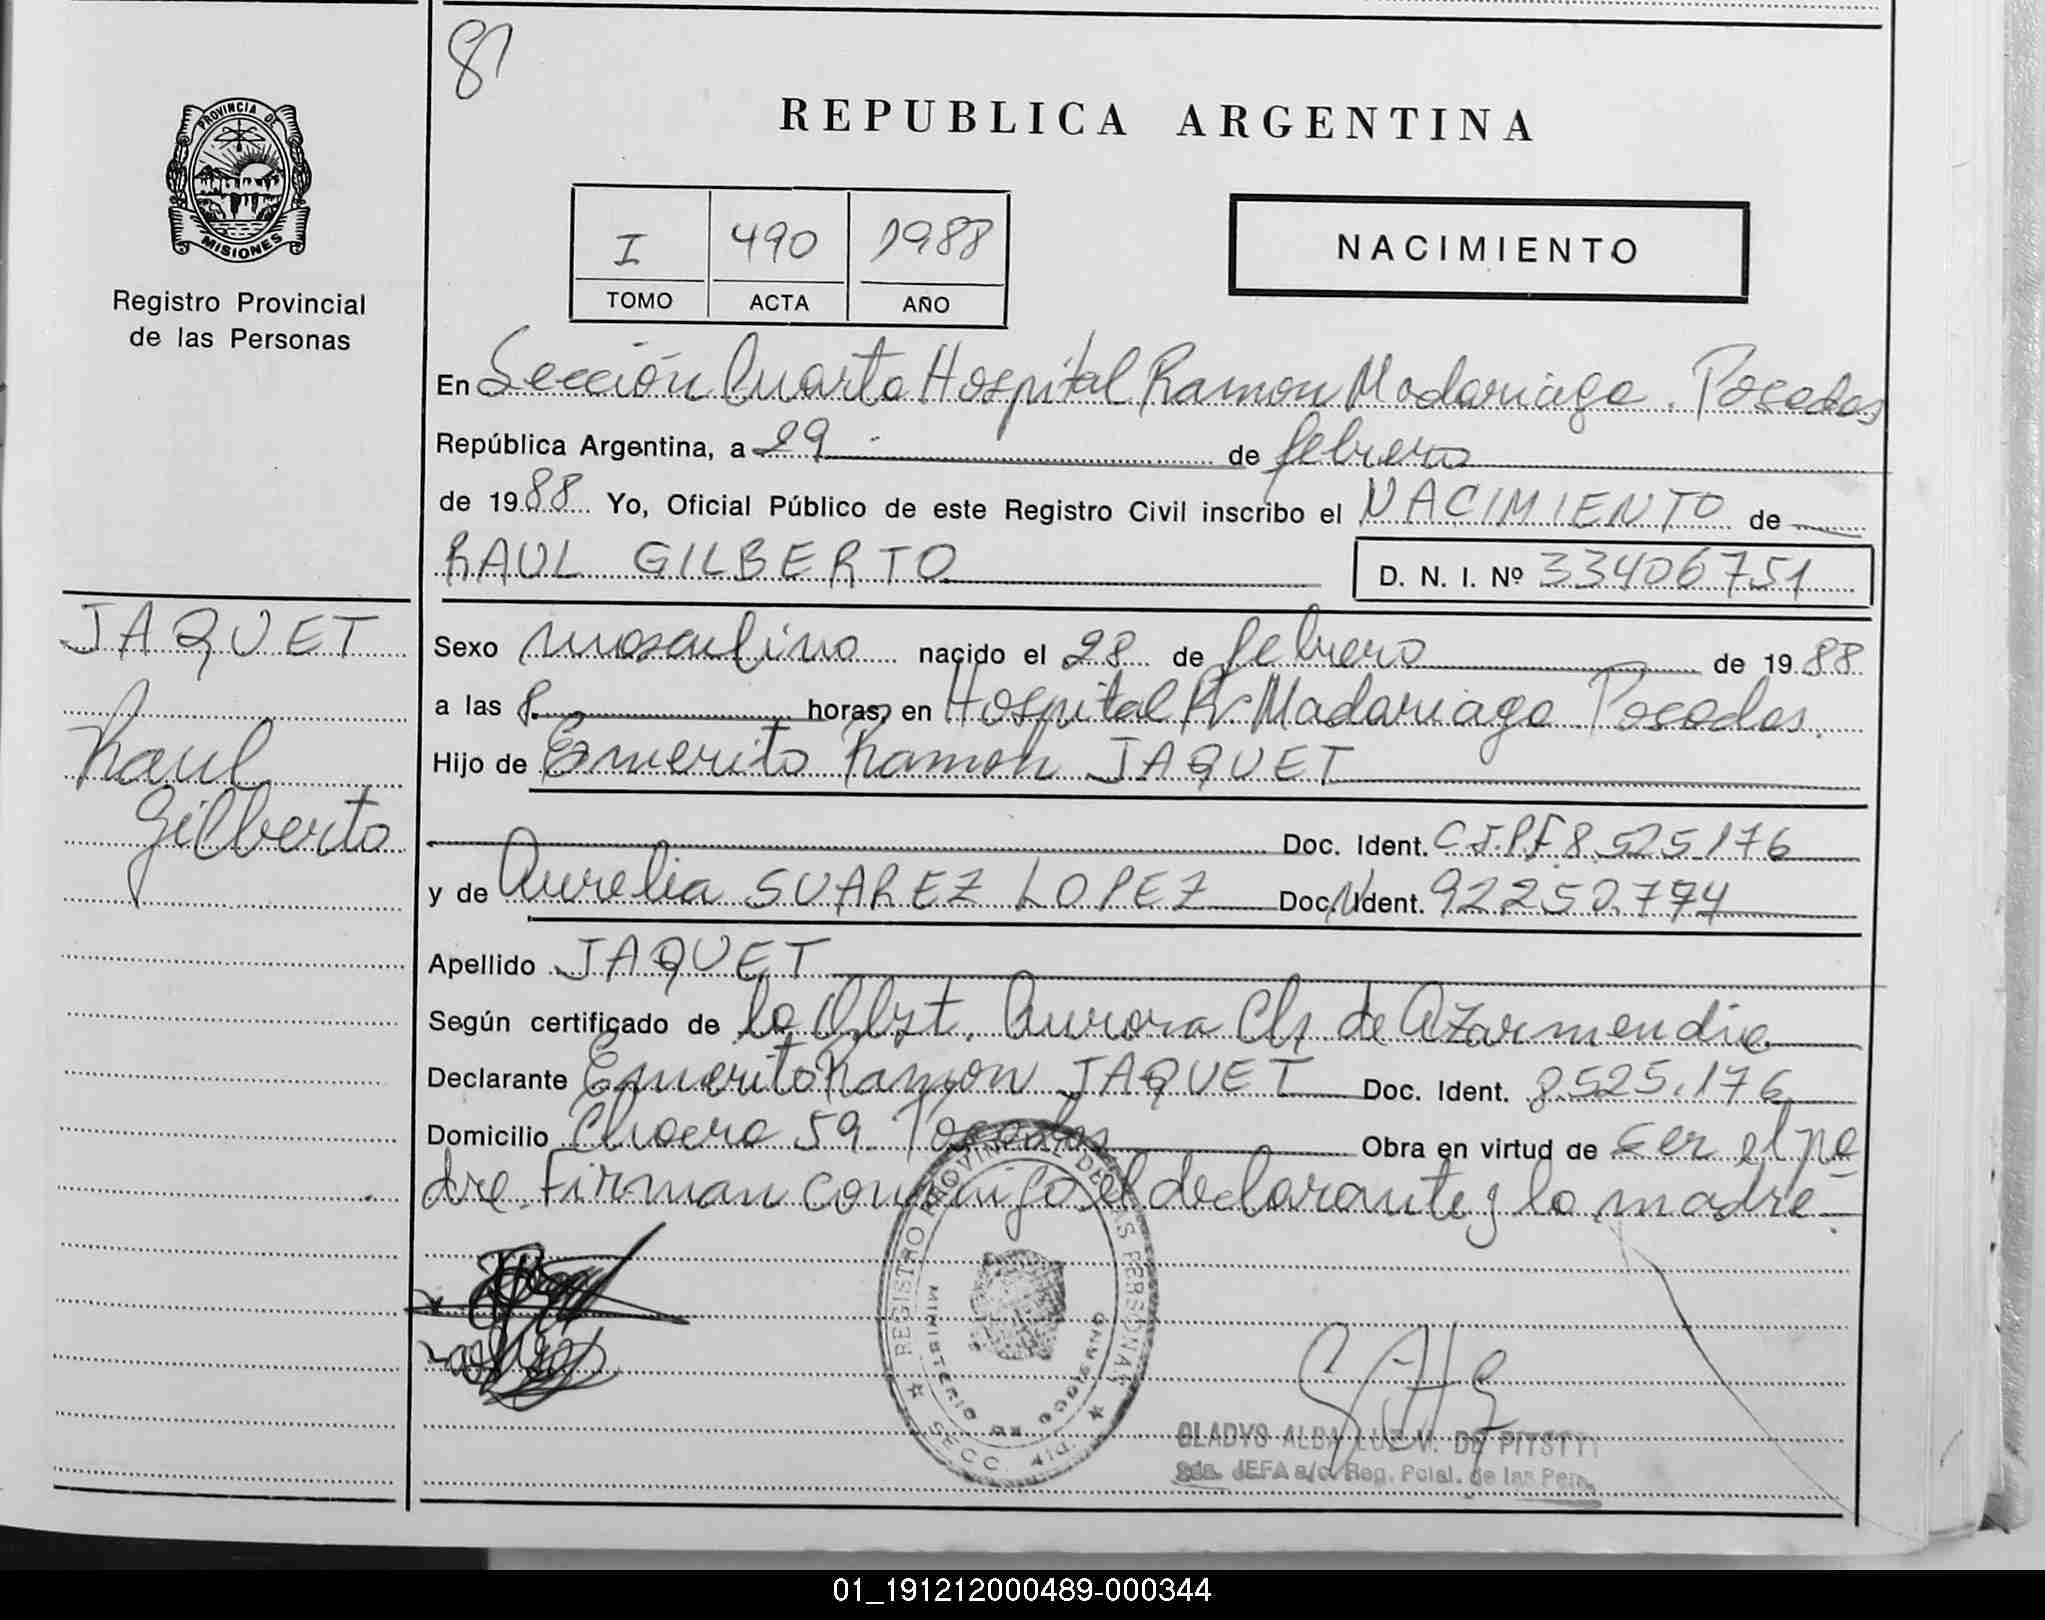 81
REPUBLICA ARGENTINA
PROVINCIA DE
MISIONES
Registro Provincial
de las Personas
I 490 1988
TOMO ACTA AÑO
NACIMIENTO
En Sección Cuarta Hospital Ramon Madariaga. Posadas
República Argentina, a 29 de febrero
de 1988 Yo, Oficial Público de este Registro Civil inscribo el NACIMIENTO de
RAUL GILBERTO D. N. I. Nº 33406751
JAQUET
Raul
Gilberto
Sexo masculino nacido el 28 de febrero de 1988
a las 8 horas, en Hospital R Madariaga Posadas.
Hijo de Esmerito Ramon JAQUET
Doc. Ident. C.I.P.F. 8.525.176
y de Aurelia SUAREZ LOPEZ Doc. Ident. 92250.774
Apellido JAQUET
Según certificado de la Obst. Aurora Ch de Azarmendia
Declarante Esmerito Ramon JAQUET Doc. Ident. 8.525.176
Domicilio 59 Posadas Obra en virtud de ser el pa-
dre. Firman conmigo el declarante y la madre.-
REGISTRO PROVINCIAL DE LAS PERSONAS
MINISTERIO DE GOBIERNO
SECC. 4ta.
GLADYS ALBA LUZ V. DE
JEFA a/c. Reg. Pcial. de las Pers.
01_191212000489-000344